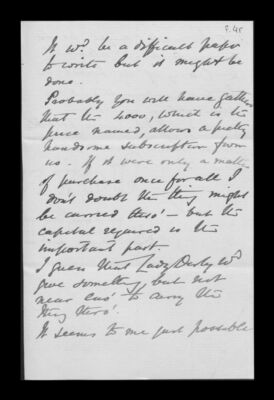 f. 45
It wd. be a difficult paper
to write but it might be
done.
Probably you will have gather
that the 4000, which is the
price named, allows a pretty
handsome subscription from
us. If it were only a matter
of purchase once for all I
don't doubt the thing might
be carried thro' – but the
capital required is the
important part.
I guess that Lady Derby wd
give something, but not
near eno' to carry the
thing thro'.
It seems to me just possible